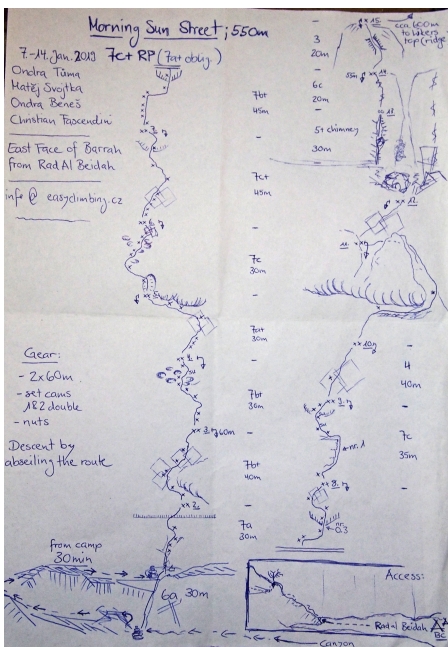 Morning Sun Street ; 550m
7.-14. Jan. 2019 7c+ RP (7a+ oblig.)
Ondra Tůma
Matěj Svojtka
Ondra Beneš
Christian Fascendini
East Face of Barrah
from Rad Al Beidah
info @ easyclimbing.cz
Gear:
- 2x60m
- set cams
1&2 double
- nuts
Descent by
abseiling the route
from camp
30min
6a 30m
2.
3. 60m
7b+
45m
-
7c+
45m
-
7c
30m
-
7a+
30m
-
7b+
30m
-
7b+
40m
-
7a
30m
-
3
20m
-
6c
20m
-
5+ chimney
30m
-
-
-
4
40m
-
7c
35m
-
15.
cca 600m
to hikers
top (ridge
55m 14.
13.
12.
11.
10.
9.
nr. 1
8.
nr.
0.3
Access:
Rad al Beidah
BC
Canyon